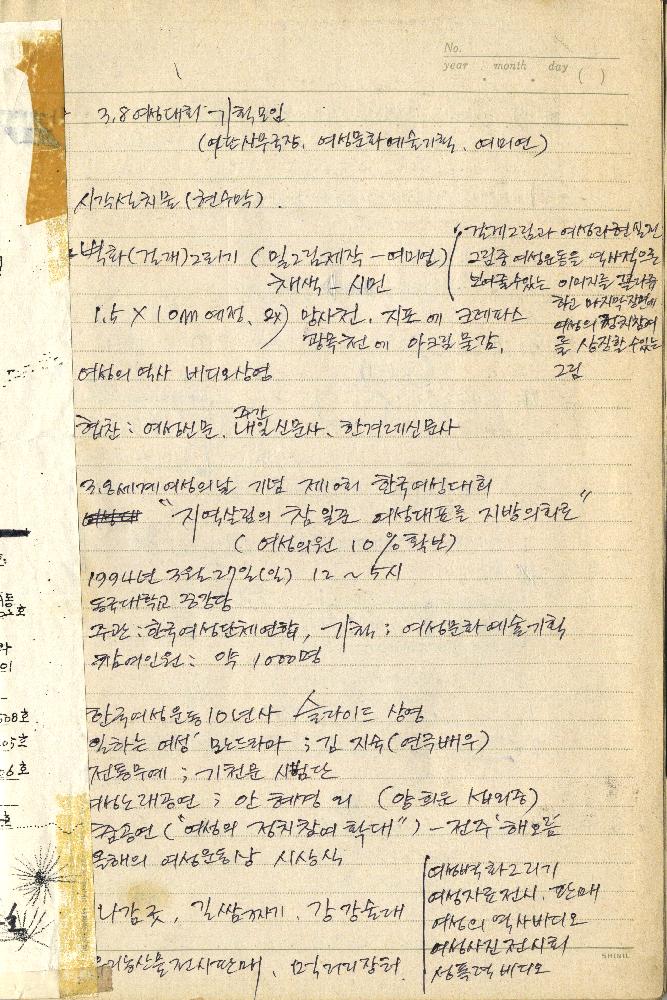 No.
year month day ( )
3.8 여성대회 기획모임
(여단사무국장, 여성문화예술기획, 여미연)
시각설치물 (현수막).
벽화(걸개)그리기 (밑그림제작 - 여미연)
채색 - 시민
걸개그림과 여성과 현실전
그림중 여성운동을 역사적으로
보여줄수있는 이미지를
하고 마지막 장면에
여성의 정치참여
를 상징할 수있는
그림
1.5 X 10m 예정, 망사천, 지포에 크레파스
광목천에 아크릴 물감.
여성의 역사 비디오상영
협찬 : 여성신문, 주간 내일신문사, 한겨레신문사
3.8세계여성의날 기념 제10회 한국여성대회
"지역살림의 참일꾼 여성대표를 지방의회로"
( 여성의원 10%확보)
1994년 3월 27일(일) 12 ~ 5시
동국대학교 중강당
주관 : 한국여성단체연합, 기획 ; 여성문화예술기획
참여인원 : 약 1000명
한국여성운동10년사 슬라이드 상영
일하는 여성' 모노드라마 ; 김지숙(연극배우)
전통무예 ; 기천문 시범단
여성노래공연 ; 안혜경 외 (양희은 섭외중)
춤공연 ("여성의 정치참여 확대") - 전주 '해오름
올해의 여성운동상 시상식
나감굿, 길쌈짜기, 강강술래
우리농산물전시판매, 먹거리장터
여성벽화그리기
여성자료전시, 판매
여성의 역사비디오
여성사진전시회
성폭력 비디오
SHINIL
508호
05호
6호